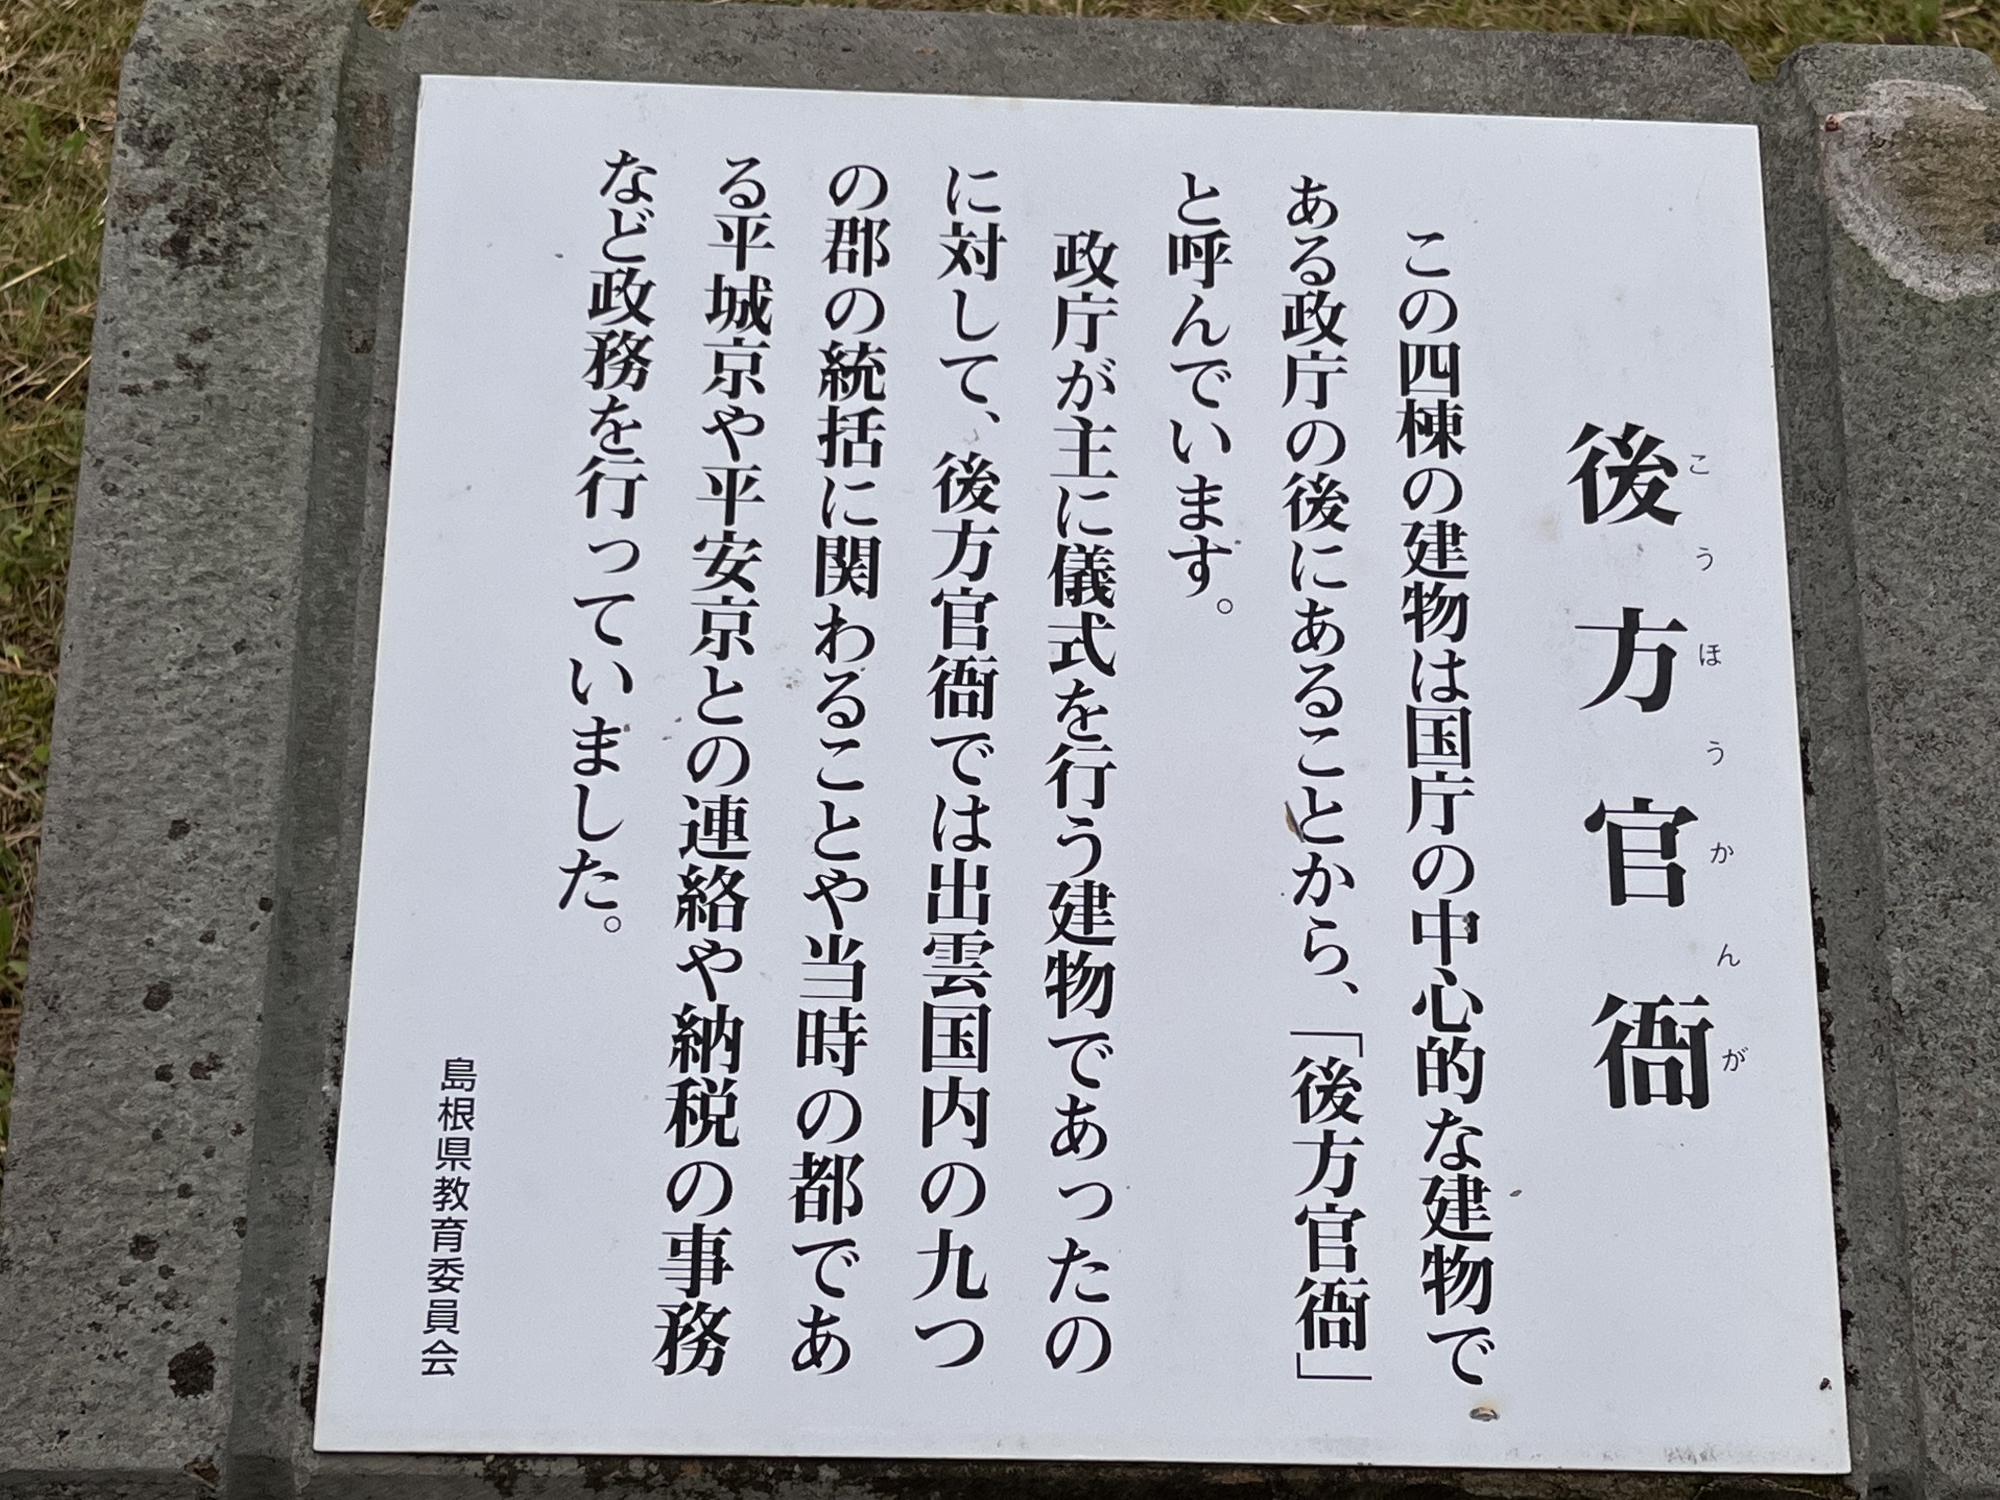 後方官衙
こうほうかんが
この四棟の建物は国庁の中心的な建物で
ある政庁の後にあることから、「後方官衙」
と呼んでいます。
政庁が主に儀式を行う建物であったの
に対して、後方官衙では出雲国内の九つ
の郡の統括に関わることや当時の都であ
る平城京や平安京との連絡や納税の事務
など政務を行っていました。
島根県教育委員会